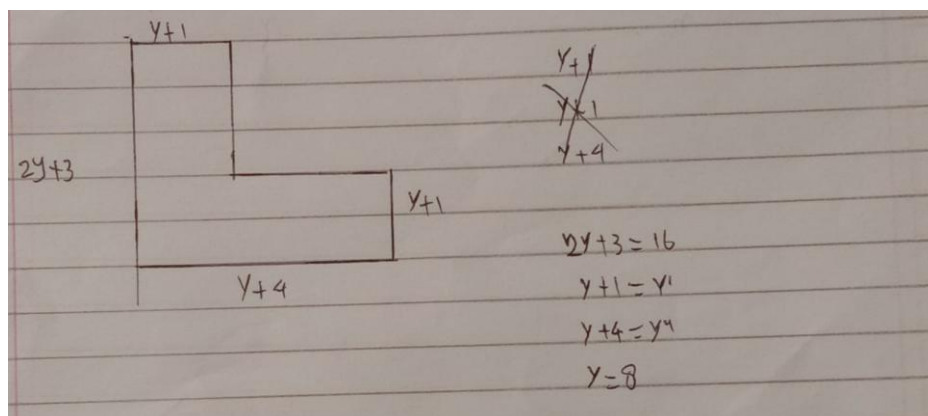 y+1
2y+3
y+1
y+4
y+1
y+1
y+4
2y+3=16
y+1=y'
y+4=y"
y=8